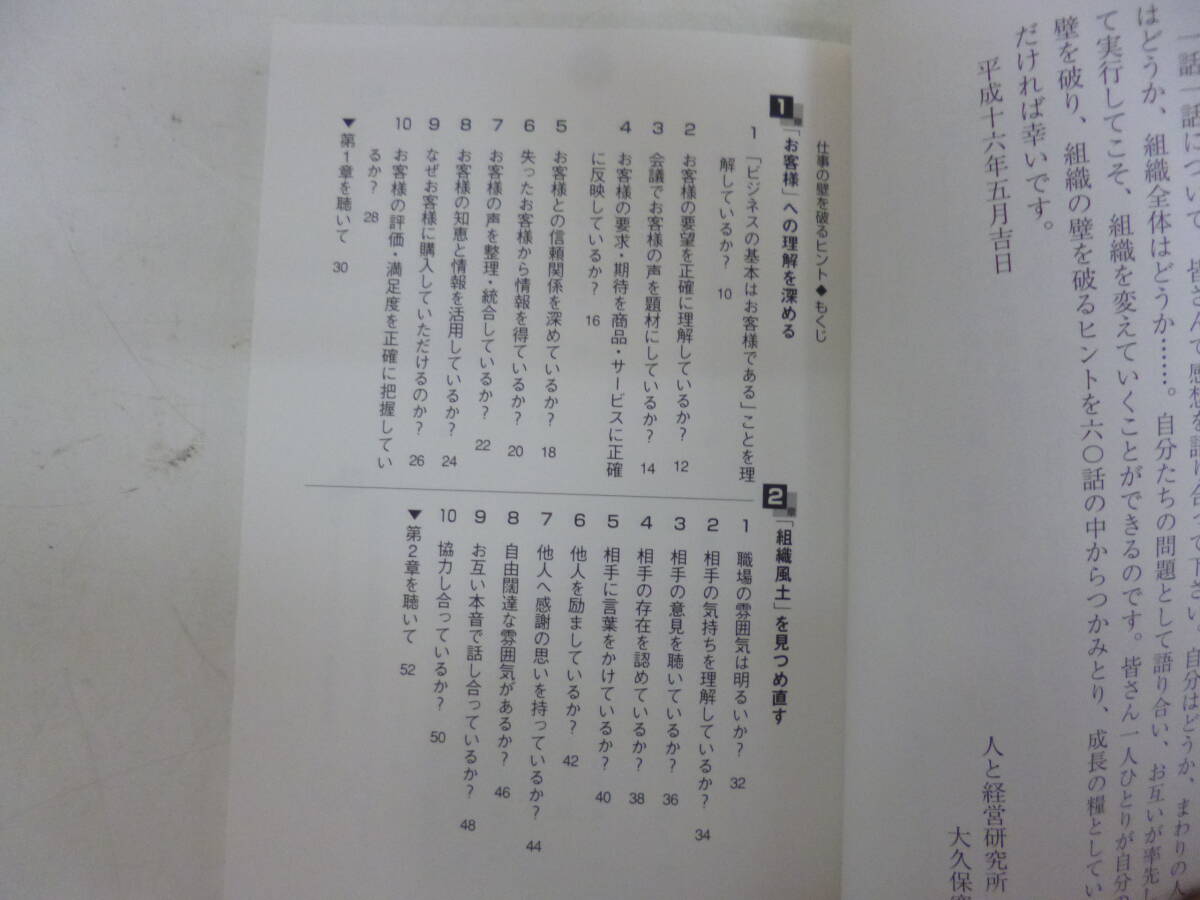 一話一話について、皆さんで感想を語り合って下さい。自分はどうか、まわりの人
はどうか、組織全体はどうか……。自分たちの問題として語り合い、お互いが率先し
て実行してこそ、組織を変えていくことができるのです。皆さん一人ひとりが自分の
壁を破り、組織の壁を破るヒントを六〇話の中からつかみとり、成長の糧としてい
だければ幸いです。
平成十六年五月吉日
人と経営研究所
大久保
仕事の壁を破るヒント◆もくじ
1章 「お客様」への理解を深める
1 「ビジネスの基本はお客様である」ことを理
解しているか? 10
2 お客様の要望を正確に理解しているか? 12
3 会議でお客様の声を題材にしているか? 14
4 お客様の要求・期待を商品・サービスに正確
に反映しているか? 16
5 お客様との信頼関係を深めているか? 18
6 失ったお客様から情報を得ているか? 20
7 お客様の声を整理・統合しているか? 22
8 お客様の知恵と情報を活用しているか? 24
9 なぜお客様に購入していただけるのか? 26
10 お客様の評価・満足度を正確に把握してい
るか? 28
▼第1章を聴いて 30
2章 「組織風土」を見つめ直す
1 職場の雰囲気は明るいか? 32
2 相手の気持ちを理解しているか? 34
3 相手の意見を聴いているか? 36
4 相手の存在を認めているか? 38
5 相手に言葉をかけているか? 40
6 他人を励ましているか? 42
7 他人へ感謝の思いを持っているか? 44
8 自由闊達な雰囲気があるか? 46
9 お互い本音で話し合っているか? 48
10 協力し合っているか? 50
▼第2章を聴いて 52